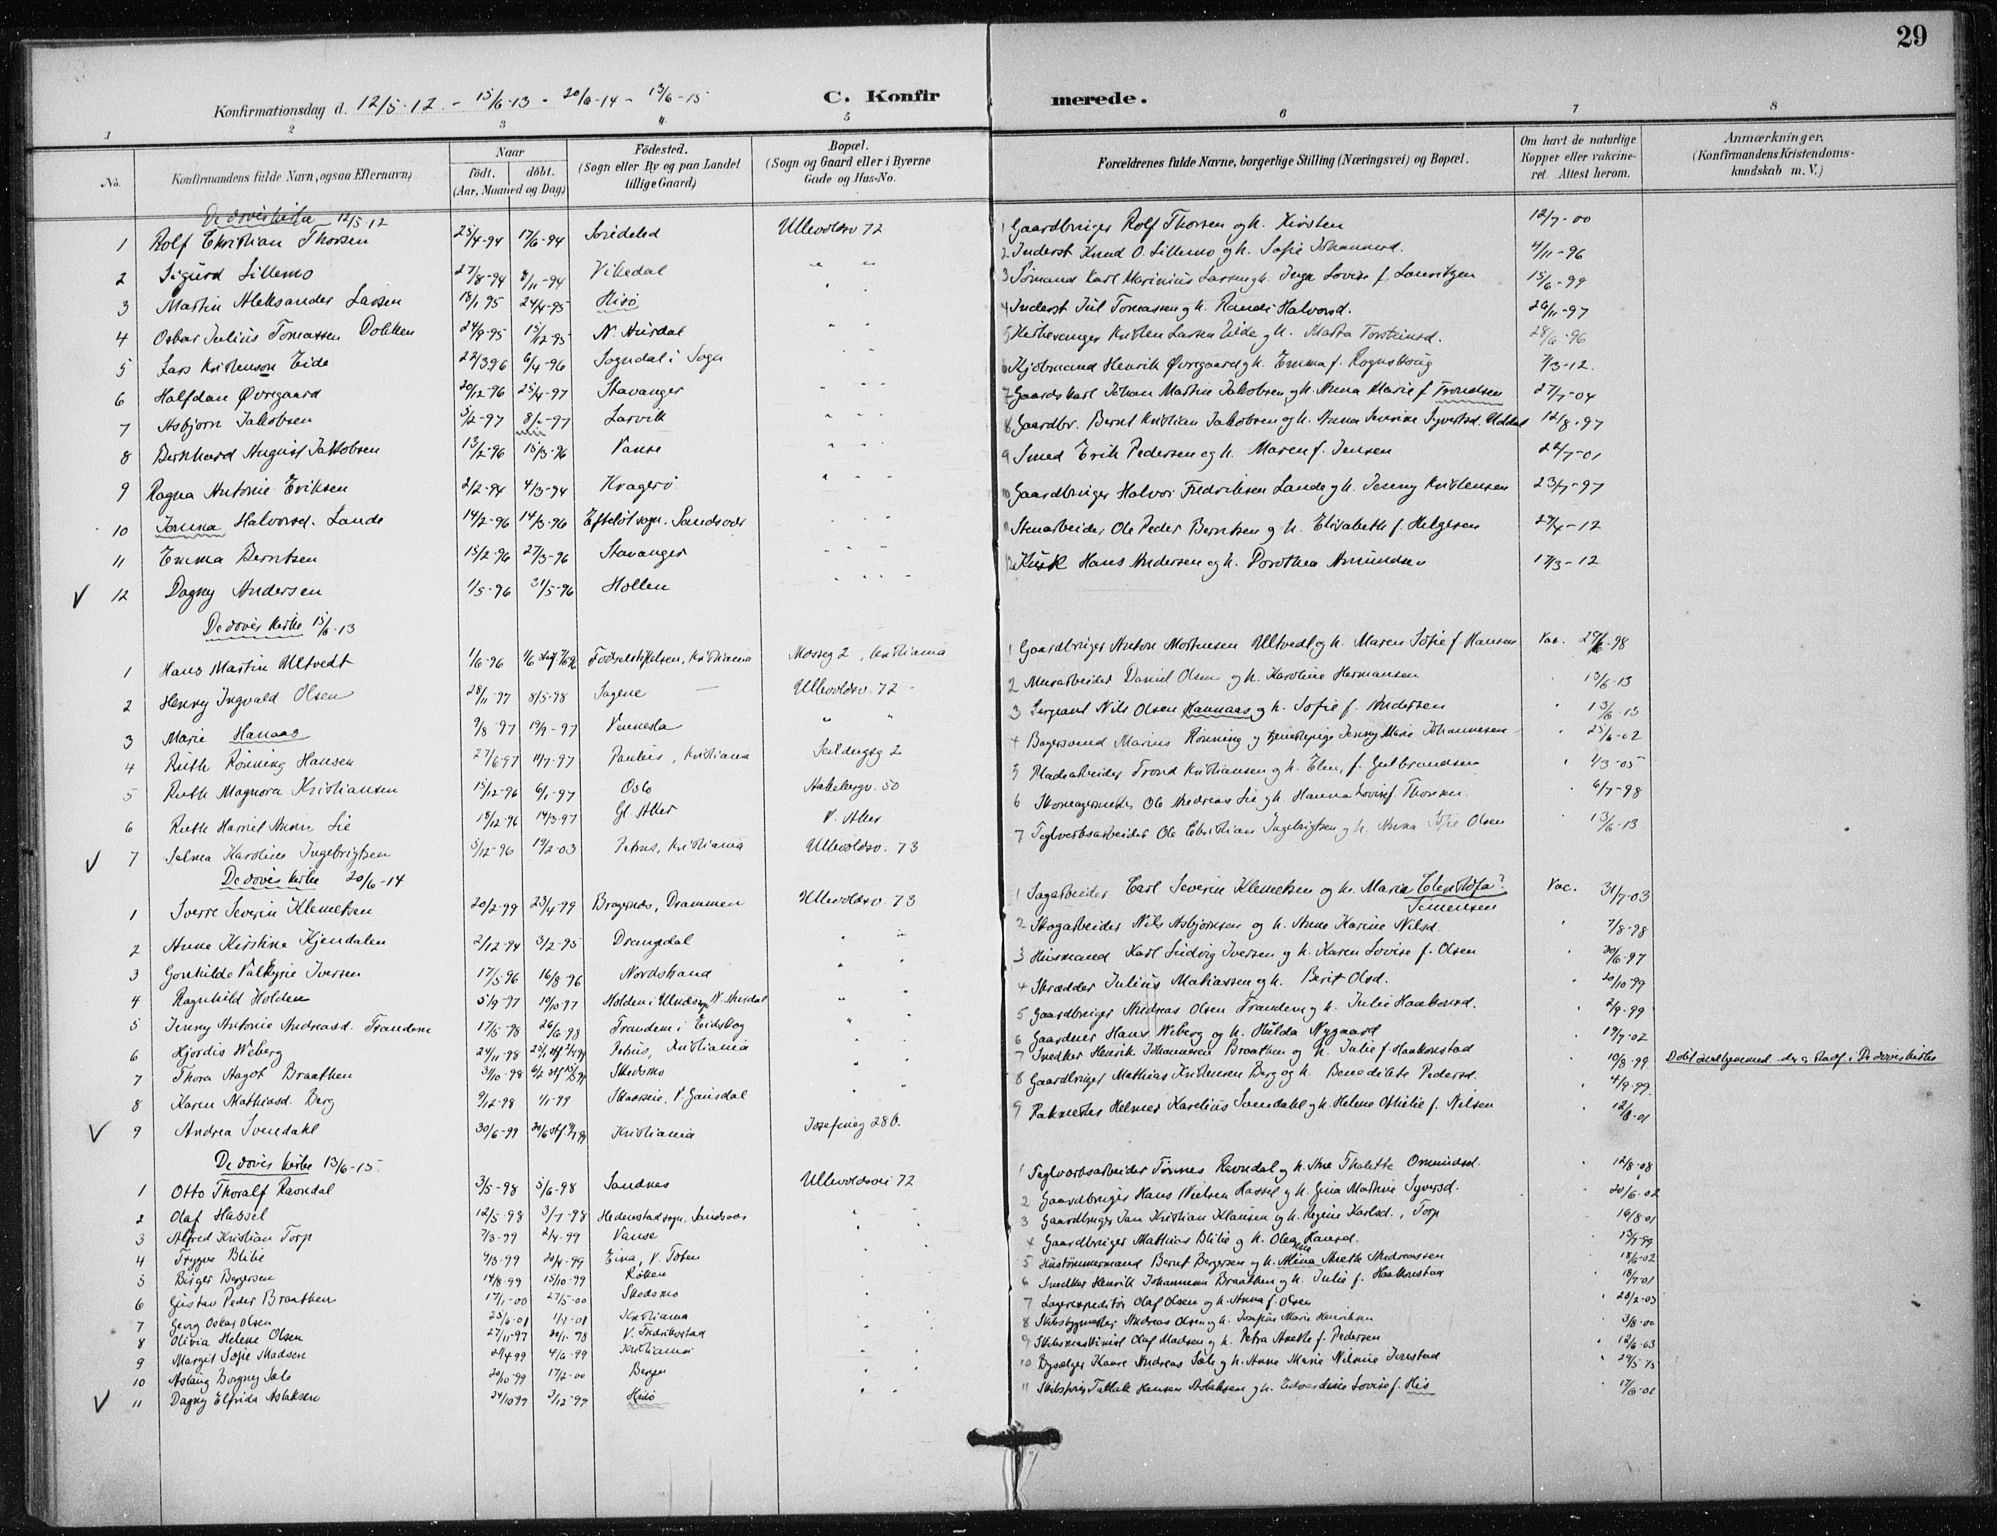 29
Konfirmationsdag d. 12/5-12 - 15/6-13 - 20/6-14 - 13/6-15
C. Konfirmerede.
1 2 3 4 5 6 7 8
No. Konfirmandens fulde Navn, ogsaa Efternavn) Naar født. døbt. (Aar, Maaned og Dag) Fødested. (Sogn eller By og paa Landet tillige Gaard) Bopæl. (Sogn og Gaard eller i Byerne Gade og Hus-No. Forældrenes fulde Navne, borgerlige Stilling (Næringsvei) og Bopæl. Om havt de naturlige Kopper eller vakcineret. Attest herom. Anmærkninger. (Konfirmandens Kristendomskundskab m. V.)
De døves kirke 12/5-12
1 Rolf Christian Thorsen 25/4-94 17/6-94 Søndeled Ullevoldsv 72 1 Gaardbruger Rolf Thorsen og h. Kirsten 12/7-00
2 Sigurd Lillemo 27/8-94 Vikedal " " 2 Inderst Knud O. Lillemo og h. Sofie Johannesd. 4/11-96
3 Martin Aleksander Larsen 18/1 95 24/4-95 Hisø " " 3 Sømand Karl Marinius Larsen og h. Inga Lovise f. Lauritzen 15/6-99
4 Oskar Julius Tomassen Dokken 24/9-95 15/12-95 N. Aurdal " " 4 Inderst Jul Tomassen og h. Randi Halvorsd. 26/11-97
5 Lars Kristenson Eide 22/3 96 6/4-96 Sogndal i Sogn " " 5 Kirkesanger Kristen Larsen Eide og h. Marta Torsteinsd. 28/6-96
6 Halfdan Øvregaard 20/12-96 25/4-97 Stavanger " " 6 Kjøbmand Henrik Øvregaard og h. Emma f. 7/3-12.
7 Asbjørn Jakobsen 5/2-97 Larvik " " 7 Gaardskarl Johan Martin Jakobsen og h. Anna Marie f. Trondsen 27/7-04
8 Bernhard August Jakobsen 13/2-96 15/3-96 Vanse " " 8 Gaardbr. Bernt Kristian Jakobsen og h. Anna Severine Syvertsd. 12/8-97
9 Ragna Antonie Eriksen 2/2-94 4/3-94 Kragerø " " 9 Smed Erik Pedersen og h. Maren f. Jensen 22/7-01
10 Halvorsd. Lande 14/2-96 14/3-96 Efteløt sogn. Sandsvær " " 10 Gaardbruger Halvor Fredriksen Lande og h. Jenny Kristensen 23/7-97
11 Emma Berntsen 15/2-96 27/3-96 Stavanger " " 11 Stenarbeider Ole Peder Berntsen og h. Elisabeth f. Helgesen 29/4-12
12 Dagny Andersen 1/5-96 31/5-96 Hollen " " 12 Kusk Hans Andersen og h. Dorothea Amundsen 17/3-12
De døves kirke 15/6-13
1 Hans Martin Ultvedt 1/6-96 Fødselsstiftelsen, Kristiania Mosseg 2, Kristiania 1 Gaardbruger Anton Mortensen Ultvedt og h. Maren Sofie f. Hansen Vac. 29/6-98
2 Henny Ingvald Olsen 28/11-97 8/5-98 Sagene — Ullevoldsv. 72 - 2 Murarbeider Daniel Olsen og h. Karoline Hermansen 13/6-13
3 Marie Hanaas 9/8-97 19/9-97 Vennesla " " 3 Sergeant Nils Olsen Hannaas og h. Sofie f. Andersen 13/6-13
4 Ruth Rønning Hansen 27/6-97 11/7-97 Paulus, Kristiania 2 4 Bagersvend Marius Rønning og tjenestepige Jenny Marie Johannesen 25/6-02
5 Ruth Magnora Kristiansen 15/12-96 6/1-97 Oslo Aakebergv. 50 5 Pladsarbeider Trond Kristiansen og h. Elen, f. Gulbrandsen 4/3-05
6 Ruth Harriet Andrea Lie 18/12-96 14/3-97 Gl. Aker V. Aker 6 Skomagermester Ole Andreas Lie og h. Hanna Lovise f. Thoresen 6/7-98
7 Selma Karoline Ingebrigtsen 5/12-96 19/2-03 Petrus, Kristiania Ullevoldsv. 73 7 Teglverksarbeider Ole Christian Ingebrigtsen og h. Anna Sofie Olsen 13/6-13
De døves kirke 20/6-14
1 Sverre Severin Klemetsen 20/2-99 23/4-99 Bragernes, Drammen Ullevoldsv. 73 1 Sagarbeider Carl Severin Klemetsen og h. Maria Simensen Vac. 31/7-03
2 Anne Kirstine Kjendalen 2/12-94 3/2-95 Drangedal " " 2 Skogarbeider Nils Asbjørnsen og h. Anne Karine Nilsd. 7/8-98
3 Gonhilde Valkyrie Iversen 17/5-96 16/8-96 Nordstrand " " 3 Husmand Karl Ludvig Iversen og h. Karen Lovise f. Olsen 20/6-97
4 Ragnhild Holden 5/9-97 10/10-97 Holden i Ulnæs, N. Aurdal " " 4 Skrædder Julius Mathiassen og h. Berit Olsd. 20/10-99
5 Jenny Antonie Andreasd. Trandem 17/5-98 26/6-98 Trandem i Eidskog " " 5 Gaardbruger Andreas Olsen Trandem og h. Julie Haakonsd. 2/9-99
6 Hjørdis Weberg 24/11-98 Petrus, Kristiania " 6 Gaardner Hans Weberg og h. Hulda Nygaard 19/7-02
7 Thora Aagot Braathen 3/10-98 Skedsmo " 7 Snedker Henrik Johannesen Braathen og h. Julie f. Haakonstad 10/8-99 Døbt
8 Karen Mathiasd. Berg 9/12-98 1/1-99 V. Gausdal " 8 Gaardbruger Mathias Kristensen Berg og h. Benedikte Pedersd. 4/9-99
9 Andrea Svendahl 30/6-99 Kristiania Josefineg 28b. 9 Pakmester Helmer Karelius Svendahl og h. Helene Othilie f. Nilsen 12/8-01
De døves kirke 13/6-15
1 Otto Thoralf Ravndal 3/5-98 5/6-98 Sandnes Ullevoldsvei 72 1 Teglværksarbeider Tønnes Ravndal og h. Ane Thalette Omundsd. 12/8-08
2 Olaf Hassel 12/5-98 3/7-98 Hedenstad sogn, Sandsvær " 2 Gaardbruger Hans Nielsen Hassel og h. Gina Mathea Syversd. 20/6-02
3 Alfred Kristian Torp 7/3-99 2/4-99 Vanse " 3 Gaardbruger Jan Kristian Klausen og h. Regine Karlsd., Torp 16/8-01
4 Trygve Blilie 9/3-99 20/4-99 Eina, V. Toten " 4 Gaardbruger Mathias Blilie og h. Olea Hansd. 15/7-99
5 Birger Bergersen 14/8-99 15/10-99 Røken " 5 Hustømmermand Bernt Bergersen og h. Mina Aneth Andreassen 18/6-02
6 Gustav Peder Braathen 17/1-00 27/5-00 Skedsmo " 6 Snedker Henrik Johannesen Braathen og h. Julie f. Haakonstad 18/7-01
7 Georg Oskar Olsen 25/6-01 1/9-01 Kristiania " 7 Lagerexpeditør Olaf Olsen og h. Anna f. Olsen 28/2-03
8 Olivia Helene Olsen 27/11-97 20/1-98 V. Fredrikstad " 8 Skibsbygmester Andreas Olsen og h. Josefine Marie Henriksen 3/8-00
9 Margit Sofie Madsen 29/4 99 4/6-99 Kristiania " 9 Skibsmaskinist Olaf Madsen og h. Petra Anette f. Pedersen 12/6-03
10 Aslaug Borgny Sæle 20/10-99 17/2-00 Bergen " 10 Bysælger Kaare Andreas Sæle og h. Anne Marie Nilsine Jonstad 29/5-13
11 Dagny Elfrida Aslaksen 24/10 99 3/12-99 Hisø " 11 Tallak Hansen Aslaksen og h. Edvardine Lovise f. His 17/6-01